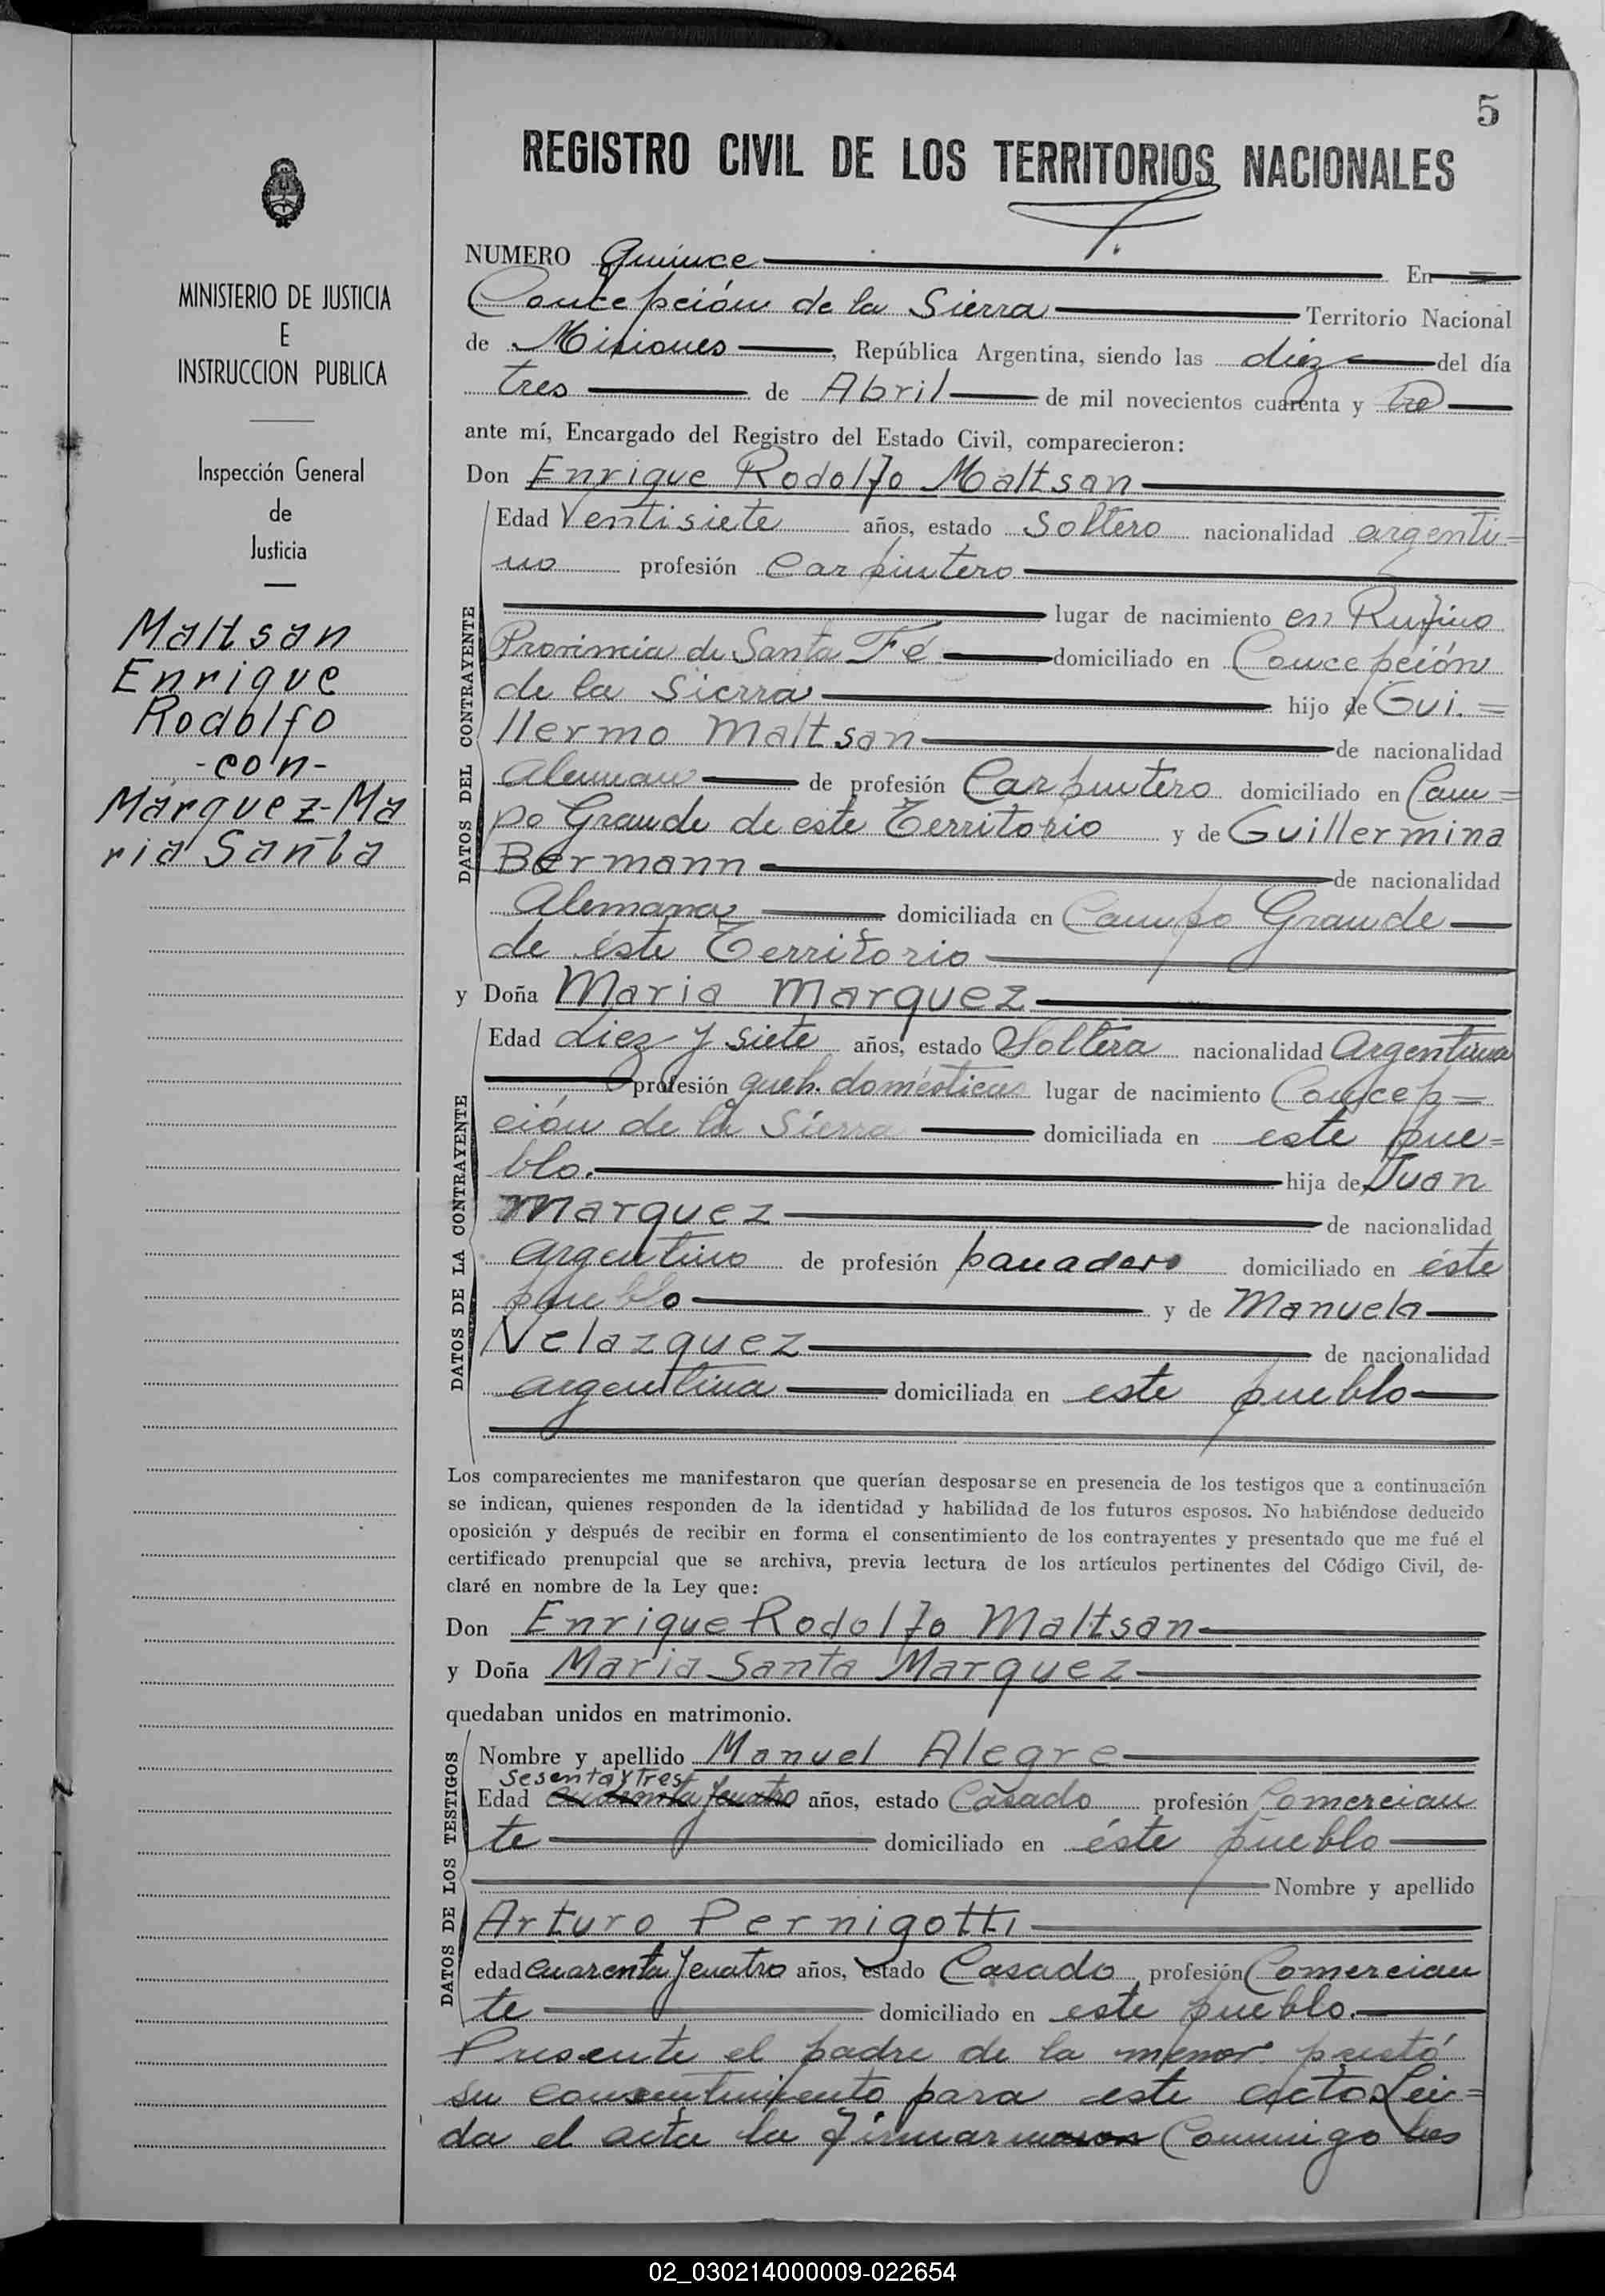 5
REGISTRO CIVIL DE LOS TERRITORIOS NACIONALES
MINISTERIO DE JUSTICIA
E
INSTRUCCION PUBLICA
Inspección General
de
Justicia
Maltsan
Enrique
Rodolfo
-con-
Márquez-Ma
ria Santa
NUMERO Quince En
Concepción de la Sierra Territorio Nacional
de Misiones, República Argentina, siendo las diez del día
tres de Abril de mil novecientos cuarenta y
ante mí, Encargado del Registro del Estado Civil, comparecieron:
Don Enrique Rodolfo Maltsan
DATOS DEL CONTRAYENTE
Edad Ventisiete años, estado Soltero nacionalidad argenti=
no profesión Carpintero
lugar de nacimiento en Rufino
Provincia de Santa Fé domiciliado en Concepción
de la Sierra hijo de Gui.=
llermo Maltsan de nacionalidad
Aleman de profesión Carpintero domiciliado en Cam=
po Grande de este Territorio y de Guillermina
Bermann de nacionalidad
Alemana domiciliada en Campo Grande
de éste Territorio
y Doña Maria Marquez
DATOS DE LA CONTRAYENTE
Edad diez y siete años, estado Soltera nacionalidad Argentina
profesión queh. domésticos lugar de nacimiento Concep=
ción de la Sierra domiciliada en este pue=
blo. hija de Juan
Marquez de nacionalidad
argentino de profesión panadero domiciliado en éste
pueblo y de Manuela
Velazquez de nacionalidad
argentina domiciliada en este pueblo
Los comparecientes me manifestaron que querían desposarse en presencia de los testigos que a continuación
se indican, quienes responden de la identidad y habilidad de los futuros esposos. No habiéndose deducido
oposición y después de recibir en forma el consentimiento de los contrayentes y presentado que me fué el
certificado prenupcial que se archiva, previa lectura de los artículos pertinentes del Código Civil, de-
claré en nombre de la Ley que:
Don Enrique Rodolfo Maltsan
y Doña Maria Santa Marquez
quedaban unidos en matrimonio.
DATOS DE LOS TESTIGOS
Nombre y apellido Manuel Alegre
Sesenta y Tres
Edad cuarenta y cuatro años, estado Casado profesión Comercian
te domiciliado en éste pueblo
Nombre y apellido
Arturo Pernigotti
edad cuarenta y cuatro años, estado Casado profesión Comercian
te domiciliado en este pueblo.
Presente el padre de la menor prestó
su consentimiento para este acto. Leí=
da el acta la firmaron Conmigo los
02_030214000009-022654